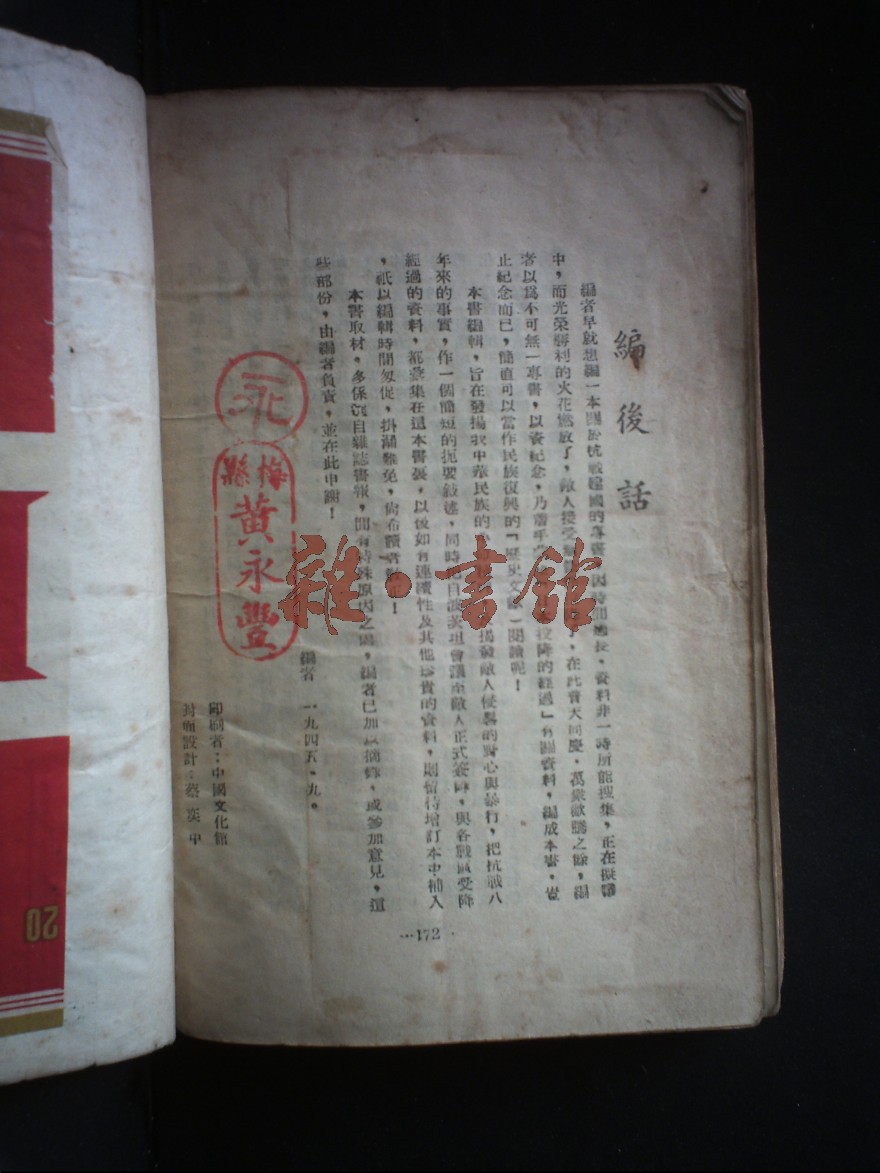 編後話
編者早就想編一本關於抗戰建國的專書,因時間過長,資料非一時所能搜集,正在擬議
中,而光榮勝利的火花燃放了,敵人接受無條件,在此普天同慶,萬眾歡騰之餘,編
者以爲不可無一專書,以資紀念,乃投降的經過」有關資料,編成本書,豈
止紀念而已,簡直可以當作民族復興的「歷史文獻」閱讀呢!
本書編輯,旨在發揚我中華民族的揭發敵人侵略的野心與暴行,把抗戰八
年來的事實,作一個簡短的扼要敍述,同時把自波茨坦會議至敵人正式簽降,與各戰區受降
經過的資料,都彙集在這本書裏,以後如有連續性及其他珍貴的資料,則留待增訂本中補入
,祇以編輯時間匆促,掛漏難免,尚希讀者!
本書取材,多係自雜誌書報,間有特殊原因之處,編者已加以摘錄,或參加意見,這
些部份,由編者負責,並在此申謝!
編者 一九四五、九。
印刷者:中國文化館
封面設計:蔡奕中
…172
永
梅縣
黃永豐
雜·書館
20